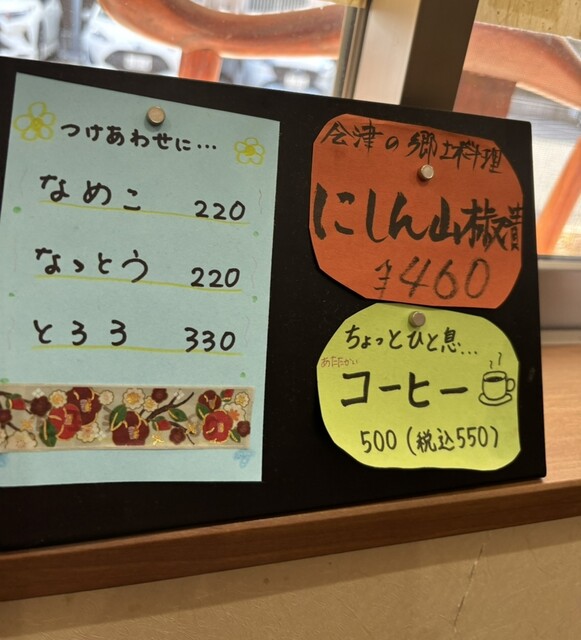 つけあわせに…
なめこ 220
なっとう 220
とろろ 330
会津の郷土料理
にしん山椒漬
¥460
ちょっとひと息…
あたたかい
コーヒー
500(税込550)